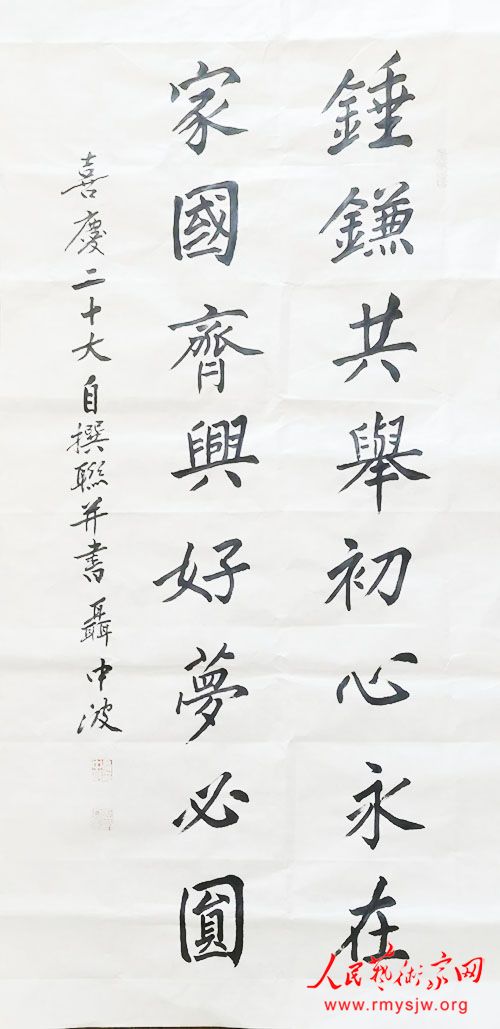 錘鐮共舉初心永在
家國齊興好夢必圓
喜慶二十大自撰聯并書聶中波
人民藝術家网
www.rmysjw.org